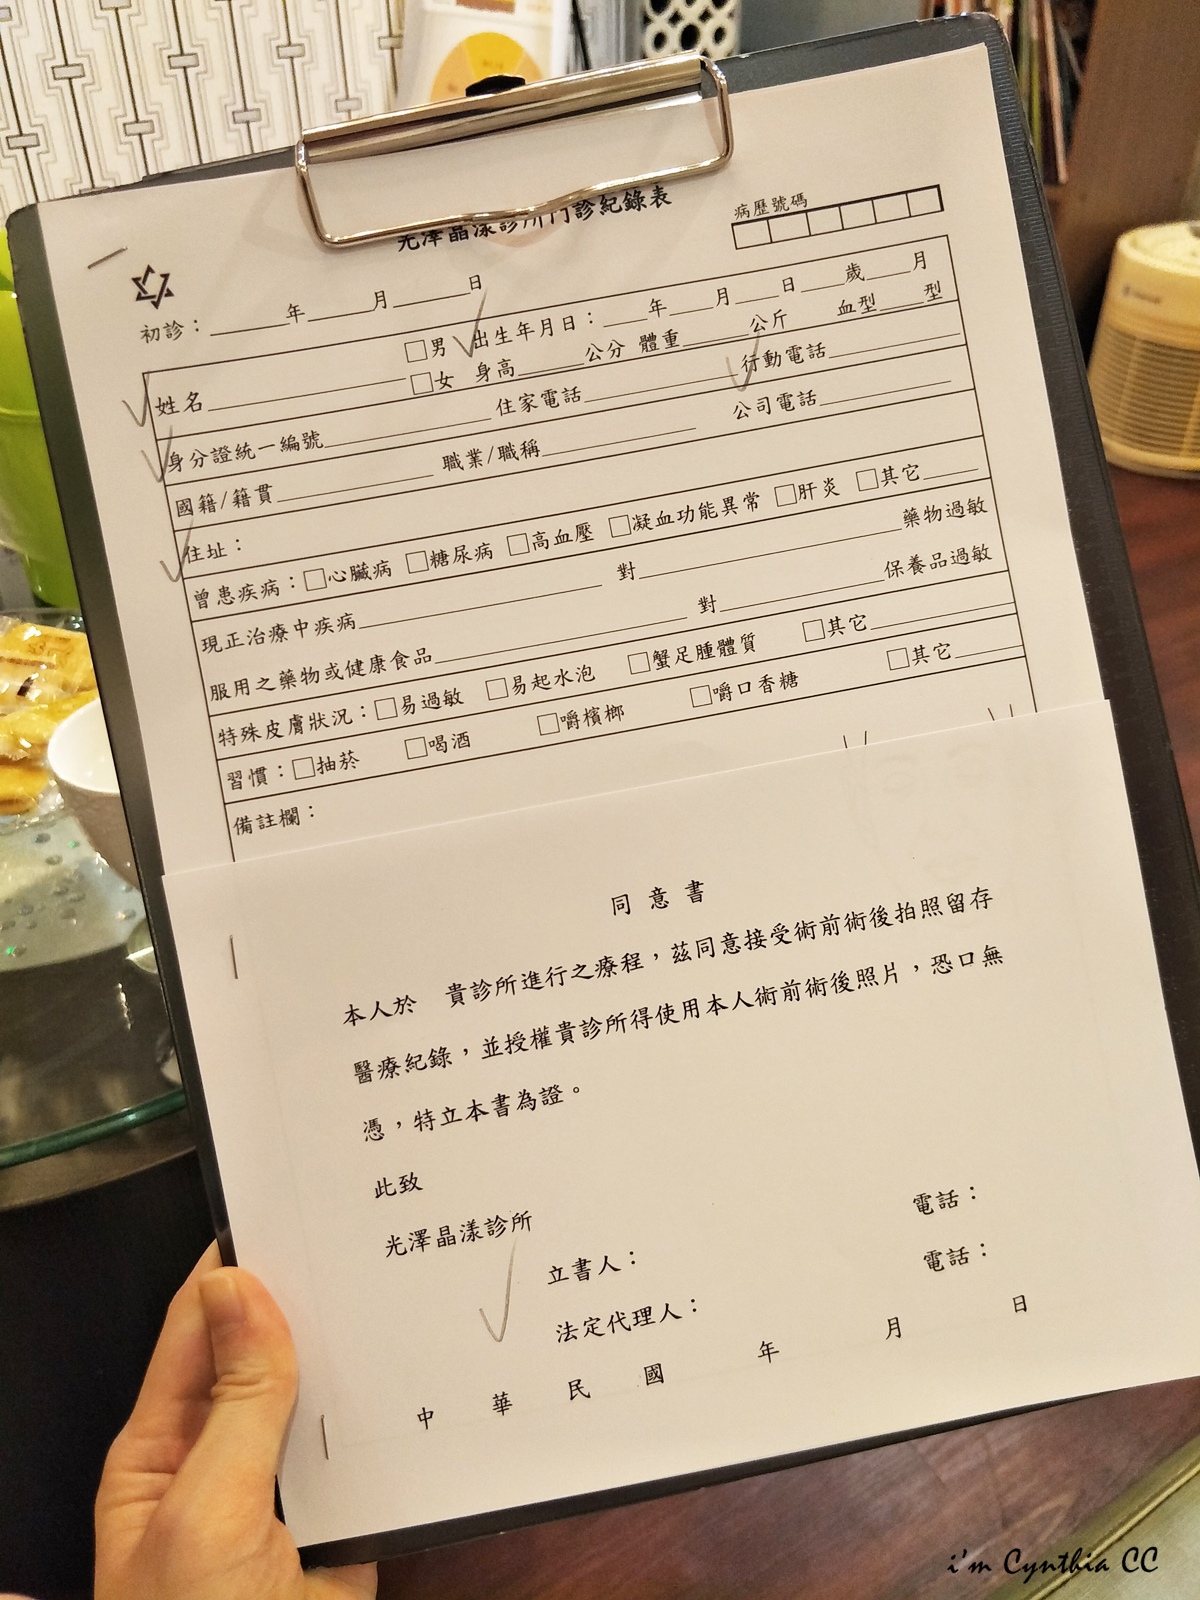 光澤晶漾診所門診紀錄表
病歷號碼
初診：______年______月______日
姓名__________ □男 □女 出生年月日：____年____月____日____歲____月
身高______公分 體重______公斤 血型____型
身分證統一編號__________ 住家電話__________ 行動電話__________
國籍/籍貫__________ 職業/職稱__________ 公司電話__________
住址：
曾患疾病：□心臟病 □糖尿病 □高血壓 □凝血功能異常 □肝炎 □其它____
現正治療中疾病__________ 對__________藥物過敏
服用之藥物或健康食品__________ 對__________保養品過敏
特殊皮膚狀況：□易過敏 □易起水泡 □蟹足腫體質 □其它__________
習慣：□抽菸 □喝酒 □嚼檳榔 □嚼口香糖 □其它____
備註欄：
同意書
本人於 貴診所進行之療程，茲同意接受術前術後拍照留存
醫療紀錄，並授權貴診所得使用本人術前術後照片，恐口無
憑，特立本書為證。
此致
光澤晶漾診所
立書人： 電話：
法定代理人： 電話：
中 華 民 國 年 月 日
i'm Cynthia CC